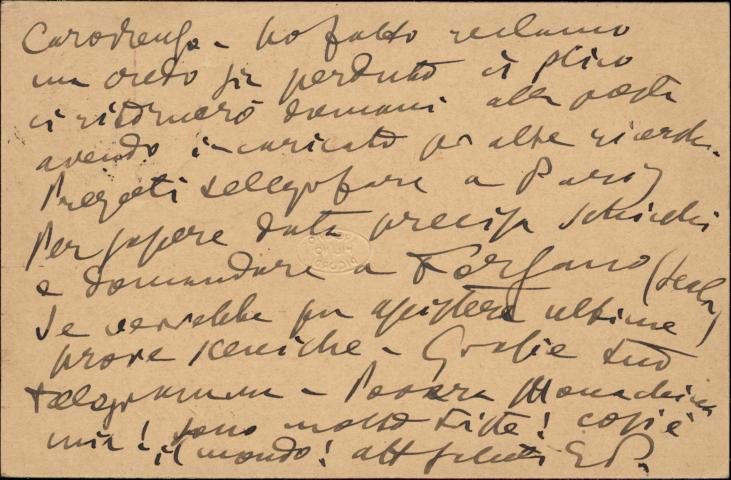 Caro Renzo - ho fatto reclamo
ma credo sia perduto il plico
ci ritornerò domani alla posta
avendo incaricato per altre ricerche.
Pregoti telegrafare a Parigi
per sapere data precisa Schicchi
e domandare a Forzano (Scala)
se verrebbe per assistere ultime
prove sceniche - Grazie tuo
telegramma - Povera Monachina
mia! sono molto triste! così è
il mondo! aff saluti GP.